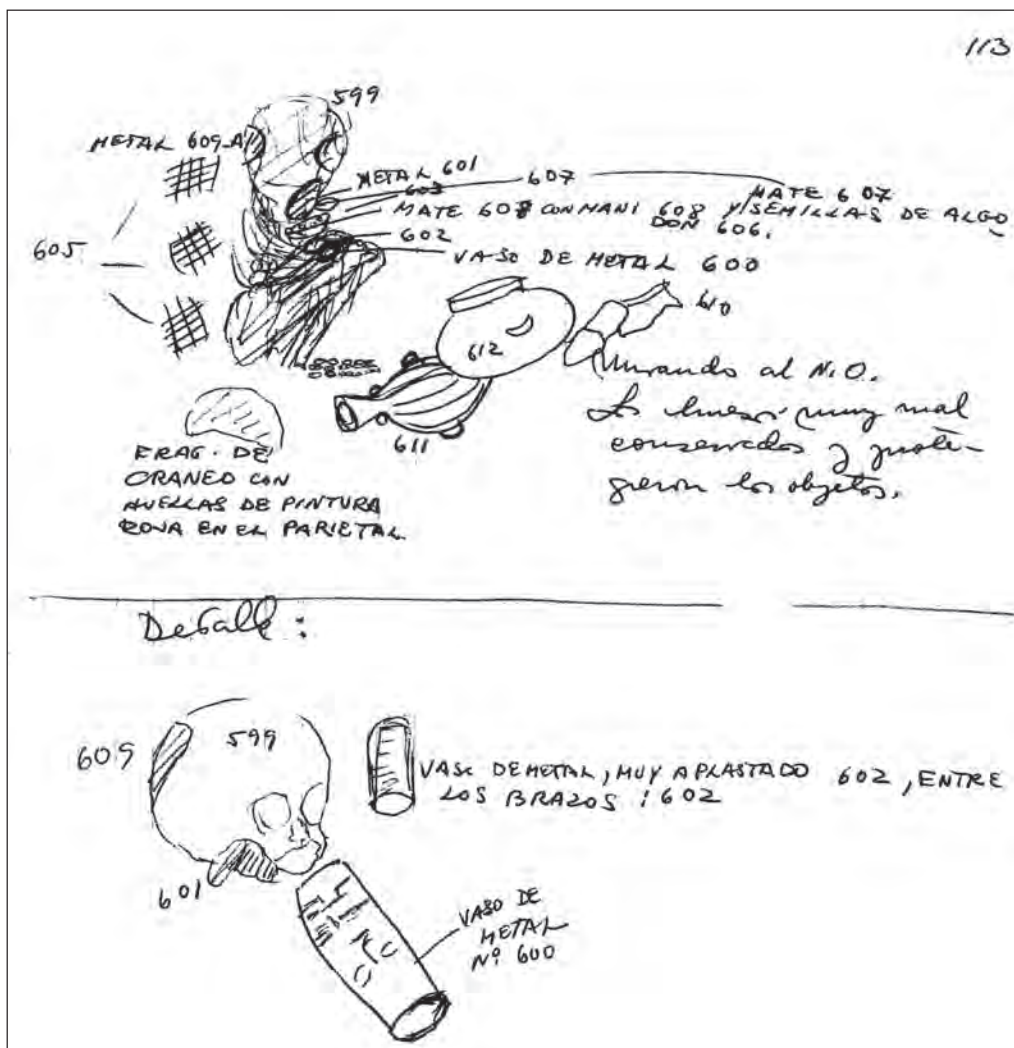 113
599
METAL 609-A
METAL 601
603
607
MATE 607
MATE 607 CON MANI 608 Y SEMILLAS DE ALGO
DON 606.
602
605
VASO DE METAL 600
610
612
611
Mirando al N.O.
muy mal
conservados y prote-
gieron los objetos.
FRAG. DE
CRANEO CON
HUELLAS DE PINTURA
ROJA EN EL PARIETAL.
Detalle :
609
599
VASO DE METAL, MUY APLASTADO 602, ENTRE
LOS BRAZOS : 602
601
VASO DE
METAL
Nº 600